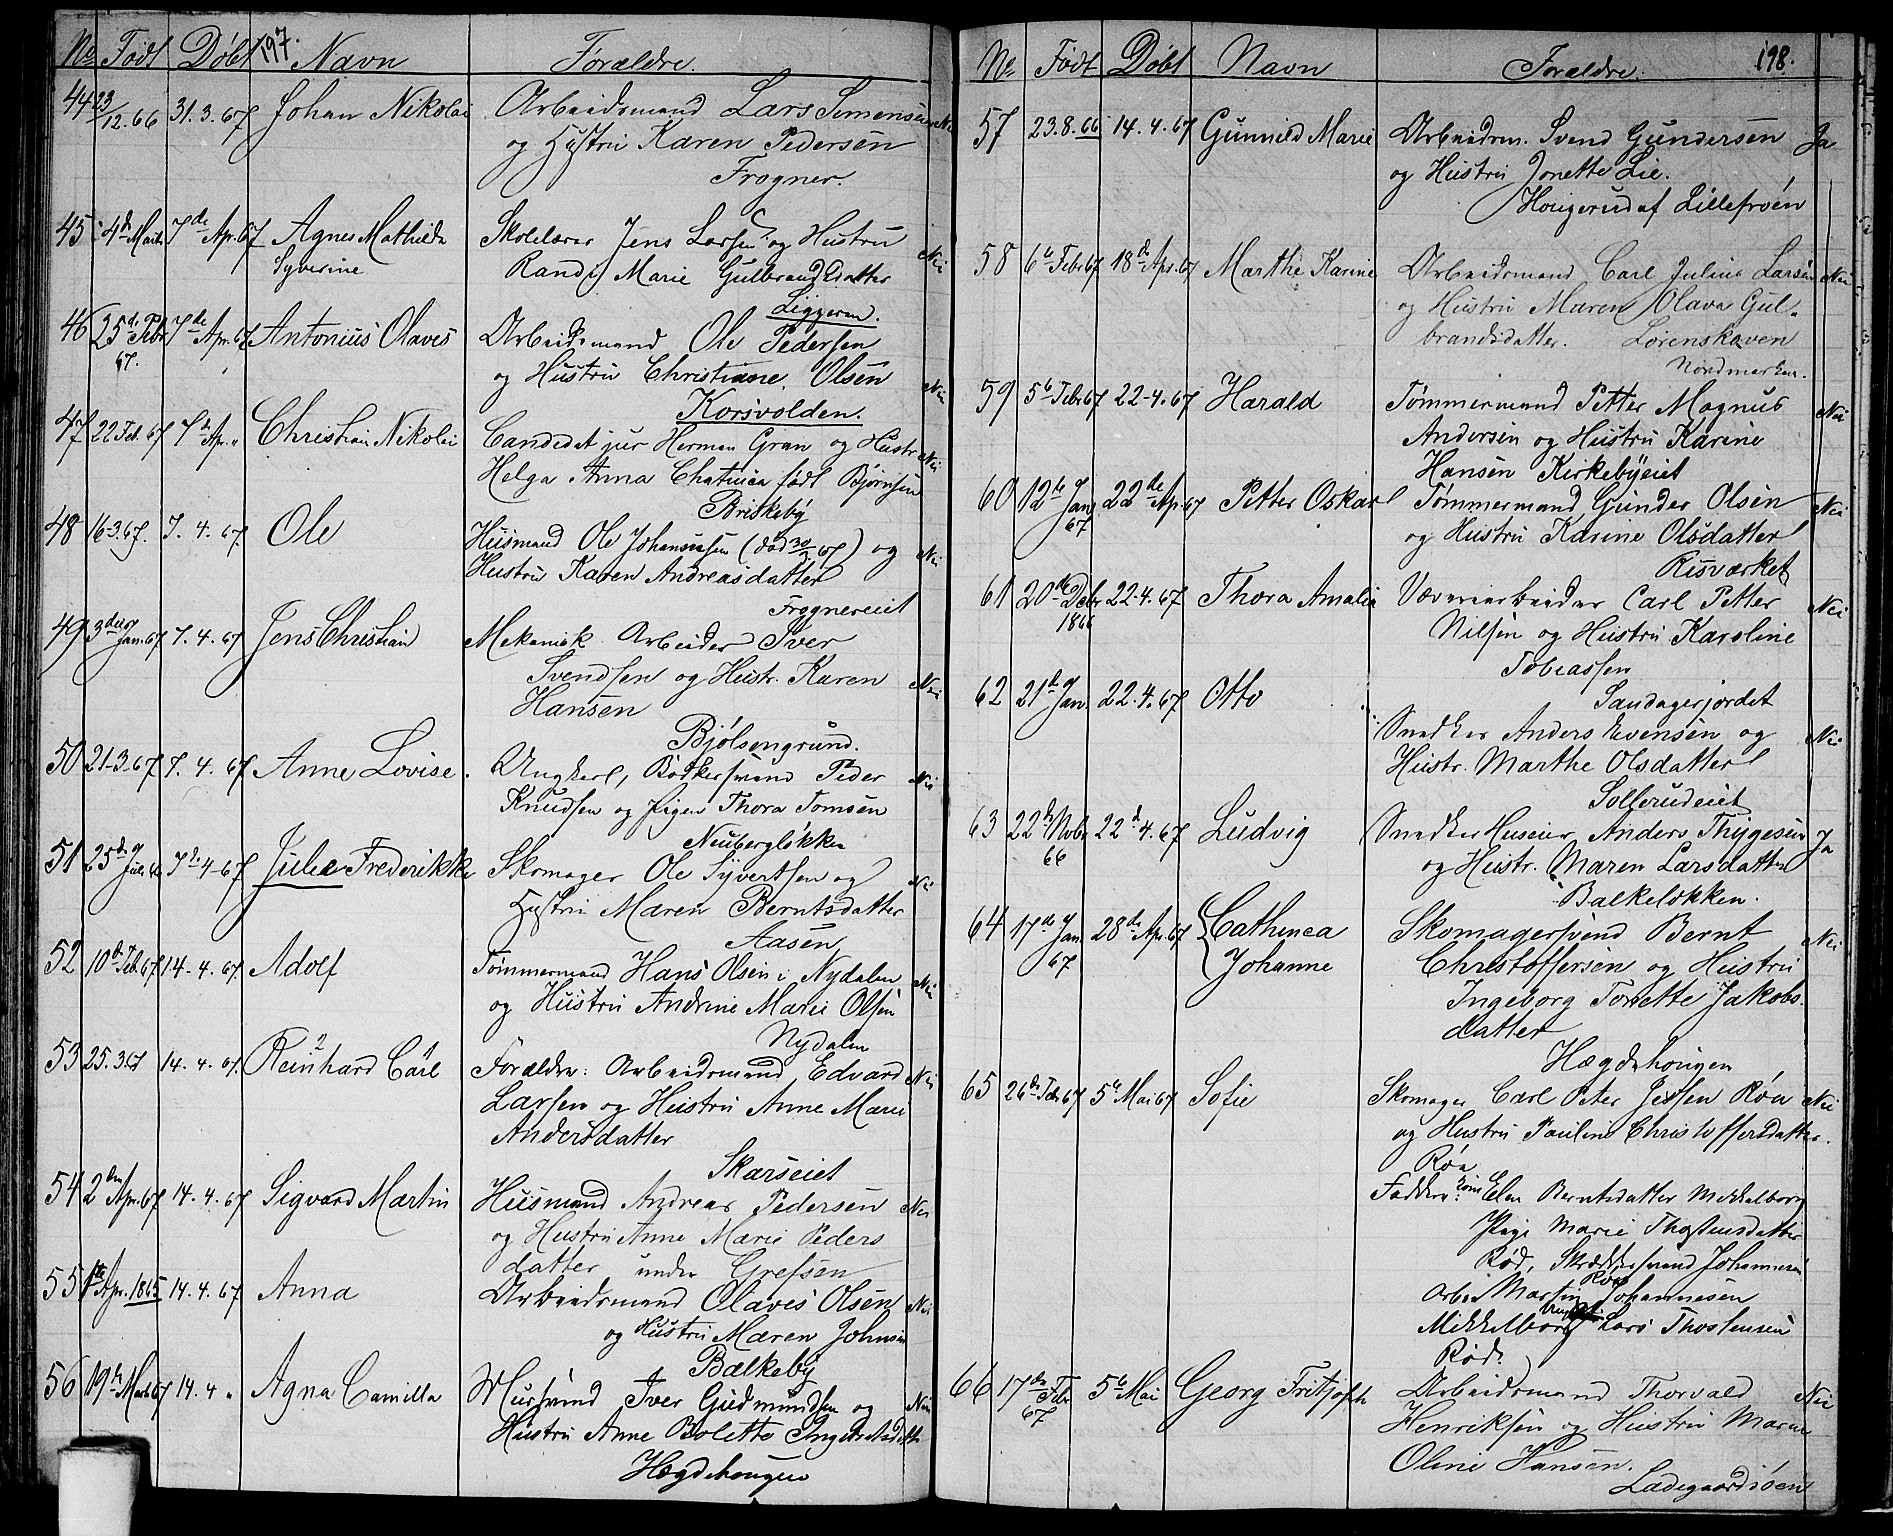 197.
No Født Døbt Navn Forældre.
44 23/12.66 31.3.67 Johan Nikolai Arbeidsmand Lars Simensen Nei
og Hustru Karen Pedersen
Frogner.
45 4de Marts 7de Apr. 67 Agnes Mathilde Skolelærer Jens Larsen og Hustru Nei
Syverine Randi Marie Gulbrandsdatter
Liggeren.
46 25de Febr 7de Apr. 67 Antonius Olaves Arbeidsmand Ole Pedersen
67. og Hustru Christiane Olsen Nei
Korsvolden.
47 22 Feb. 67 7de Apr. " Christian Nikolai Candedat jur Herman Gran og Hustr Nei
Helga Anna født Bjørnsen
Briskeby
48 16-3.67. 7. 4. 67. Ole Husmand Ole Johannesen (død 30/3 67) og Nei
Hustru Karen Andreasdatter
Frognereiet
49 3die Jan. 67 7. 4. 67 Jens Christian Mekanisk Arbeider Iver
Svendsen og Hustr. Karen Nei
Hansen
Bjølsengrund.
50 21-3.67 7. 4. 67 Anne Lovise. Ungkarl, Bødkersvend Peder Nei
Knudsen og Pigen Thora Tomsen
Neubergløkken
51 25de Juli 66 7de-4-67 Julie Frederikke Skomager Ole Syvertsen og Nei
Hustru Maren Berntsdatter
Aasen
52 10de Feb. 67 14-4.67. Adolf Tømmermand Hans Olsen i Nydalen Nei
og Hustru Andrine Marie Olsen
Nydalen
53 25.3.67 14. 4. 67. Reinhard Carl Forældre: Arbeidsmand Edvard Nei
Larsen og Hustru Anne Marie
Andersdatter
Skarseiet
54 2den Apr. 67 14. 4. 67 Sigvard Martin Husmand Andreas Pedersen Nei
og Hustru Anne Marie Peders
datter under Grefsen
55 1ste Apr. 1865 14. 4. 67 Anna Arbeidsmand Olaves Olsen Nei
og Hustru Maren Johnsen
Bælkeby
56 19de Marts 67 14. 4 " Agna Camilla Mursvend Iver Gudmundsen og Nei
Hustru Anne Bolette Ingebretsdatter
Hægdehougen
198.
No Født Døbt Navn Forældre.
57 23.8.66 14. 4. 67 Gunnild Marie Arbeidsm. Svend Gundersen Ja
og Hustru Jonette Lie.
Hougerud af Lillefroen
58 6te Febr 67 18de Apr. 67 Marthe Karine Arbeidsmand Carl Julius Larsen Nei
og Hustru Maren Olava Gul-
brandsdatter. Lørenskoven
Nordmarken.
59 5te Febr 67 22-4.67 Harald Tømmermand Petter Magnus Nei
Andersen og Hustru Karine
Hansen Kirkebyeiet
60 12te Jan 22de Apr 67 Petter Oskar Tømmermand Gunder Olsen Nei
67 og Hustru Karine Olsdatter
Risværket
61 20de Debr 22.4.67 Thora Amalia Væveriarbeider Carl Petter Nei
1866 Nilsen og Hustru Karoline
Tobiassen
Sandagerjordet
62 21de Jan. 22.4.67 Otto
Snedker Anders Evensen og Nei
Hustr. Marthe Olsdatter
Sollerudeiet
63 22de Nvbr 22de-4.67 Ludvig Snedker Huseier Anders Thygesen Ja
66 og Hustr. Maren Larsdatter
Balkeløkken.
64 17de Jan. 28de Apr. 67 Cathinca Skomagersvend Bernt Nei
67 Johanne Christoffersen og Hustru
Ingeborg Tonette Jakobs-
datter
Hægdehougen
65 26de Febr 67 5te Mai 67 Sofie Skomager Carl Peter Jensen Røa Nei
og Hustru Pauline Christoffersdatter.
Røa
Faddere: Kone Elen Berntsdatter Mekkelborg
Pige Marie Thostensdatter
Rød, Skræddersvend Johannesen
Røa
Arbm. Martin Johannesen
Mekkelborg Ungk. Lars Thostensen
Rød.
66 17de Febr 5te Mai Georg Fritjofh Arbeidsmand Thorvald Nei
67 Henriksen og Hustru Maren
Oline Hansen.
Ladegaardsøen